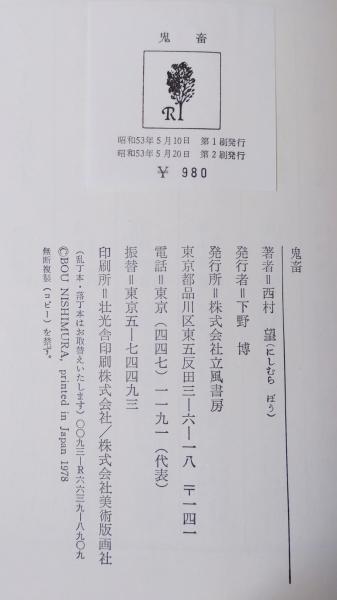 鬼畜
R
昭和53年5月10日 第1刷発行
昭和53年5月20日 第2刷発行
¥ 980
鬼畜
著者＝西村 望(にしむら ぼう)
発行者＝下野 博
発行所＝株式会社立風書房
東京都品川区東五反田三―六―一八 〒一四一
電話＝東京(四四七)一一九一(代表)
振替＝東京五―七四四九三
印刷所＝壮光舎印刷株式会社／株式会社美術版画社
(乱丁本・落丁本はお取替えいたします)〇〇九三―R六六三九―八九〇九
©BOU NISHIMURA, printed in Japan 1978
無断複製(コピー)を禁ず。